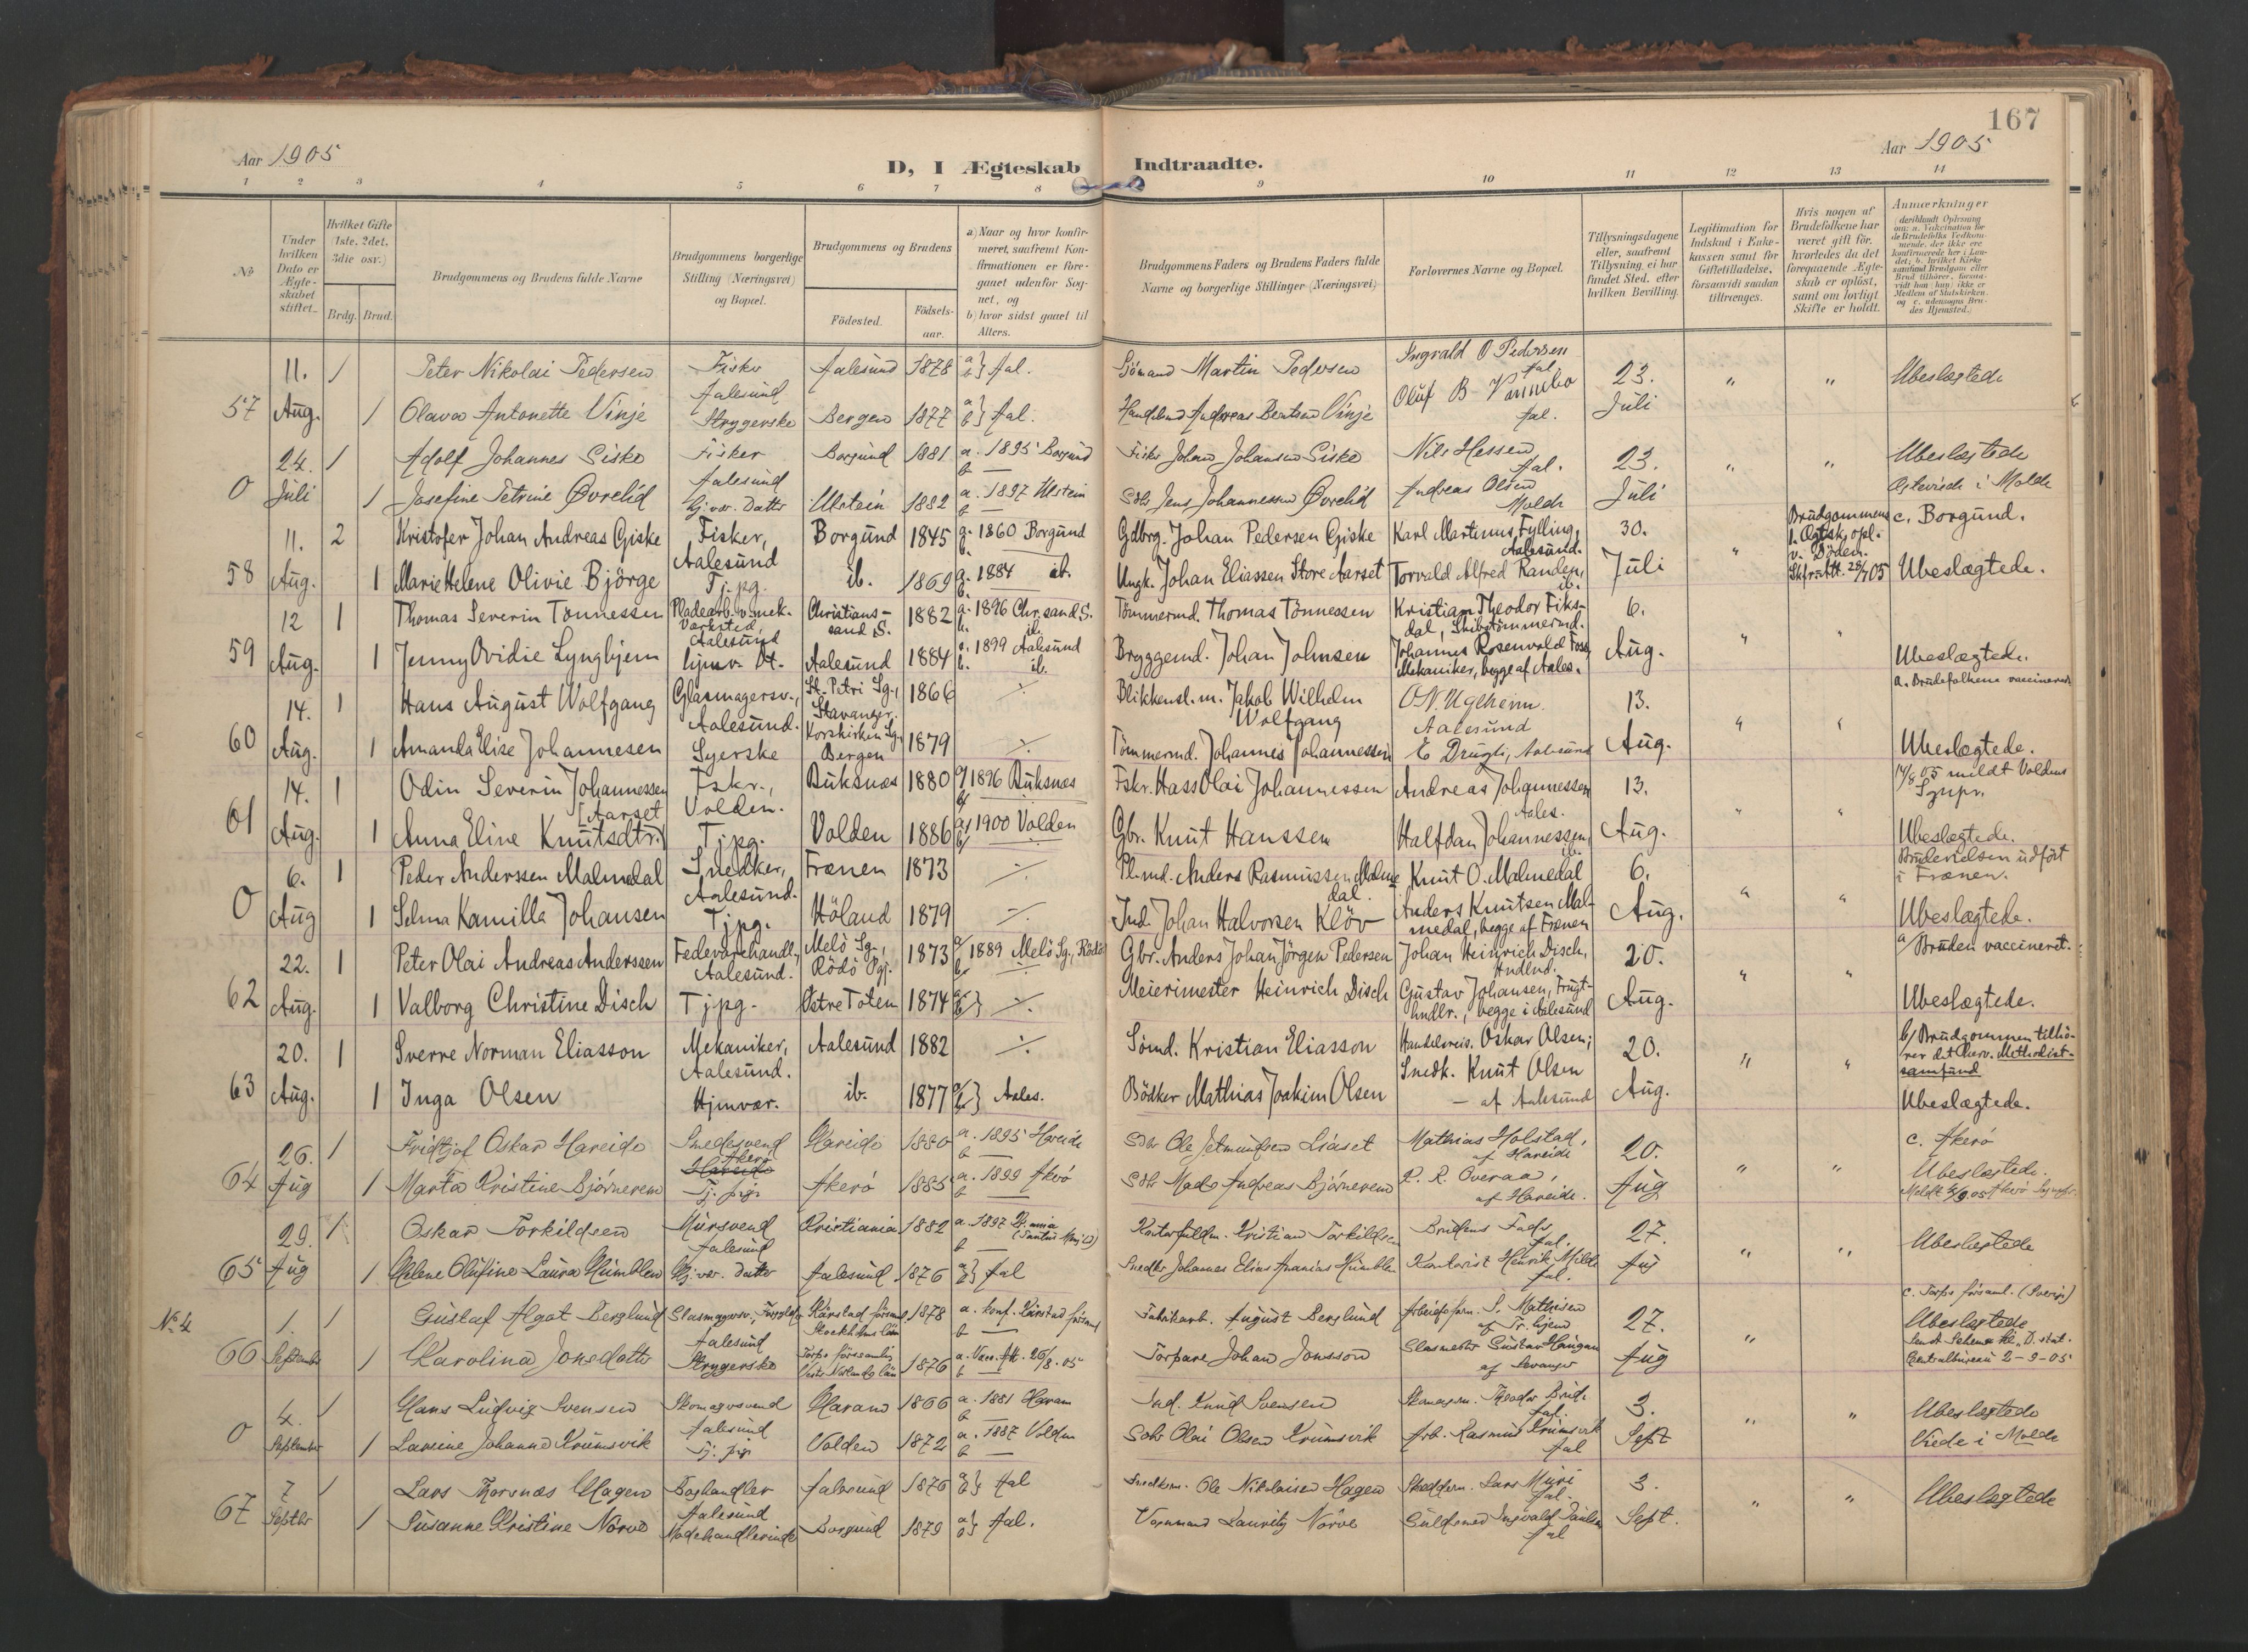 167
Aar 1905
D, I Ægteskab Indtraadte.
Aar 1905
1 2 3 4 5 6 7 8 9 10 11 12 13 14
No
Under hvilken Dato er Ægteskabet stiftet.
Hvilket Gifte (1ste, 2det, 3die osv.)
Brdg. Brud.
Brudgommens og Brudens fulde Navne
Brudgommens borgerlige Stilling (Næringsvei) og Bopæl.
Brudgommens og Brudens
Födested.
Födselsaar.
a) Naar og hvor konfirmeret, saafremt Konfirmationen er foregaaet udenfor Sognet, og
b) hvor sidst gaaet til Alters.
Brudgommens Faders og Brudens Faders fulde Navne og borgerlige Stillinger (Næringsvei)
Forlovernes Navne og Bopæl.
Tillysningsdagene eller, saafremt Tillysning ei har fundet Sted, efter hvilken Bevilling.
Legitimation for Indskud i Enkekassen samt for Giftetilladelse, forsaavidt saadan tiltrænges.
Hvis nogen af Brudefolkene har været gift før, hvorledes da det foregaaende Ægteskab er oplöst, samt om lovligt Skifte er holdt.
Anmærkninger
(deriblandt Oplysning om: a. Vakcination for de Brudefolks Vedkommende, der ikke ere konfirmerede her i Landet; b. hvilket Kirkesamfund Brudgom eller Brud tilhører, forsaavidt han (hun) ikke er Medlem af Statskirken, og c. udensogns Brudes Hjemsted.)
11. 1 Peter Nikolai Pedersen Fisker Aalesund Aalesund 1878 a b} Aal. Sjömand Martin Pedersen Ingvald O Pedersen Aal 23. " " Ubeslægtede
57 Aug. 1 Olava Antonette Vinje Strygerske Bergen 1877 a b} Aal. Andreas Bentsen Vinje Oluf B Aal. Juli
24. 1 Adolf Johannes Siske Fisker Aalesund Borgund 1881 a. 1895 Borgund b — Fisker Johan Johansen Siske Nils Hessen Aal. 23. " " Ubeslægtede
0 Juli 1 Josefine Petrine Øvrelid Hj. vær. Datter Ulstein 1882 a. 1897 Ulstein b — Jens Johannessen Øvrelid Andreas Olsen Molde Juli i Molde
11. 2 Kristofer Johan Andreas Giske Fisker, Aalesund Borgund 1845 a. 1860 Borgund b. Gdbrg. Johan Pedersen Giske Karl Martinus Fylling, Aalesund. 30. " Brudgommens 1. Ægtsk. opl. v. Döden. Skfr. Att. 28/7 05 c. Borgund.
58 Aug. 1 Marie Helene Olivie Björge Tj.pg. ib. 1869 a. 1884 ib. b. Ungk. Johan Eliassen Store Aarset Torvald Alfred Randen, ib. Juli Ubeslægtede.
12 1 Thomas Severin Tönnessen Pladearb. v. mek. Værksted, Aalesund Christianssand S. 1882 a. 1896 Chr.sand S. b. ib. Tömmermd. Thomas Tönnessen Kristian Theodor Fiksdal, Skibstömmermd. 6. " "
59 Aug. 1 Jenny Ovidie Lyngbjem hjmv. Dt. Aalesund 1884 a. 1899 Aalesund b. ib. Bryggemd. Johan Johnsen Johannes Rosenvold Foss, Mekaniker, begge af Aales. Aug. Ubeslægtede.
14. 1 Hans August Wolfgang Glasmagersv., Aalesund. St. Petri Sg., Stavanger. 1866 ./. Blikkensl.m. Jakob Wilhelm Wolfgang O.N. Uglheim. Aalesund 13. " " a. Brudefolkene vaccinerede
60 Aug. 1 Amanda Elise Johannesen Syerske Korskirken Sg., Bergen 1879 ./. Tömmermd. Johannes Johannessen E Drugli, Aalesund Aug. Ubeslægtede.
14. 1 Odin Severin Johannessen Fskr., Volden. Buksnæs 1880 a/ 1896 Buksnæs b/ Fskr. Hass Olai Johannessen Andreas Johannessen Aales. 13. " " 14/8 05 meldt Voldens Sgnpr.
61 Aug. 1 Anna Eline Knutsdtr. [Aarset Tjpg. Volden 1886 a/ 1900 Volden b/ Gbr. Knut Hanssen Halfdan Johannessen, ib. Aug. Ubeslægtede.
6. 1 Peder Anderssen Malmedal Snedker, Aalesund. Frænen 1873 ./. Pl.md. Anders Rasmussen Malmedal. Knut O. Malmedal 6. " " Brudevielsen udfört i Frænen.
0 Aug 1 Selma Kamilla Johansen Tjpg. Höland 1879 ./. Ind. Johan Halvorsen Klöv Anders Knutsen Malmedal, begge af Frænen Aug. Ubeslægtede.
22. 1 Peter Olai Andreas Anderssen Fedevarehandl., Aalesund. Melö Sg., Rödö Pgj. 1873 a/ 1889 Melö Sg., Rödö b/ ./. Gbr. Anders Johan Jörgen Pedersen Johan Heinrich Disch, Hndlnd. 20. " " a/ Bruden vaccineret.
62 Aug. 1 Valborg Christine Disch Tjpg. Östre Toten 1874 a/ b/} ./. Meierimester Heinrich Disch Gustav Johansen, Frugthndlr., begge i Aalesund Aug. Ubeslægtede.
20. 1 Sverre Norman Eliasson Mekaniker, Aalesund. Aalesund 1882 ./. Sömd. Kristian Eliasson Handelsreis. Oskar Olsen; 20. " " b/ Brudgommen tilhörer det herv. Methodistsamfund
63 Aug. 1 Inga Olsen Hjmvær. ib. 1877 a/ b/} Aales. Bödker Mathias Joakim Olsen Snedk. Knut Olsen — af Aalesund Aug. Ubeslægtede.
26. 1 Fridtjof Oskar Hareide Snedesvend Akerö Hareide Hareide 1880 a. 1895 Hareide b — Ole Jetmundsen Liaset Mathias Holstad, af Hareide 20. " " c. Akerö
64 Aug 1 Marta Kristine Björnerem Tj. pige Akerö 1885 a. 1899 Akerö b Mads Andreas Björnerem P. R. Overaa, af Hareide. Aug Ubeslægtede. Meldt 5/9 05 Akerö Sognepr.
29. 1 Oskar Torkildsen Mursvend Aalesund Kristiania 1882 a. 1897 b — Kristian Torkildsen Brudens Fader Aal. 27. " " Ubeslægtede
65 Aug 1 Helene Olufine Laura Humblen Hj. vær. Datter Aalesund 1876 a b} Aal Snedker Johannes Elias Ananias Humblen Kontorist Henrik Milde Aal. Aug
No 4 1. 1 Gustaf Algot Berglund Glasmagersv., Aalesund Kårstad församl. Stockholms län 1878 a. konf. Kårstad församl b — Fabrikarb. August Berglund Arbeidsform. S. Mathisen 27. " c. Torps församl. (Sverige)
66 September 1 Karolina Jonsdotter Strygerske Torps församling Vester Norlands län 1876 a. Vacc. Att. 26/8. 05 b — Torpare Johan Jonsson Glasmester Gustav Haugan af Levanger Aug Ubeslægtede Centralbureau 2-9-05
4. 1 Hans Ludvig Svensen Skomagersvend Aalesund Haram 1866 a. 1881 Haram b — Ind. Knud Svensen Skomagerm. Theodor Brude Aal. 3. " " Ubeslægtede
0 September 1 Lavine Johanne Krumsvik Tj. pige Volden 1872 a. 1887 Volden b — Olai Olsen Krumsvik Arb. Rasmus Krumsvik Aal Sept Viede i Molde
7 1 Lars Thorsnæs Hagen Boghandler Aalesund Aalesund 1876 a b} Aal Snedkerm. Ole Nikolaisen Hagen Skredderm. Lars Muri Aal. 3. " " Ubeslægtede
67 Septbr 1 Susanne Kristine Nörve Modehandlerinde Borgund 1879 a b} Aal. Vognmand Lauritz Nörve Guldsmed Ingvald Paulsen Aal Sept.